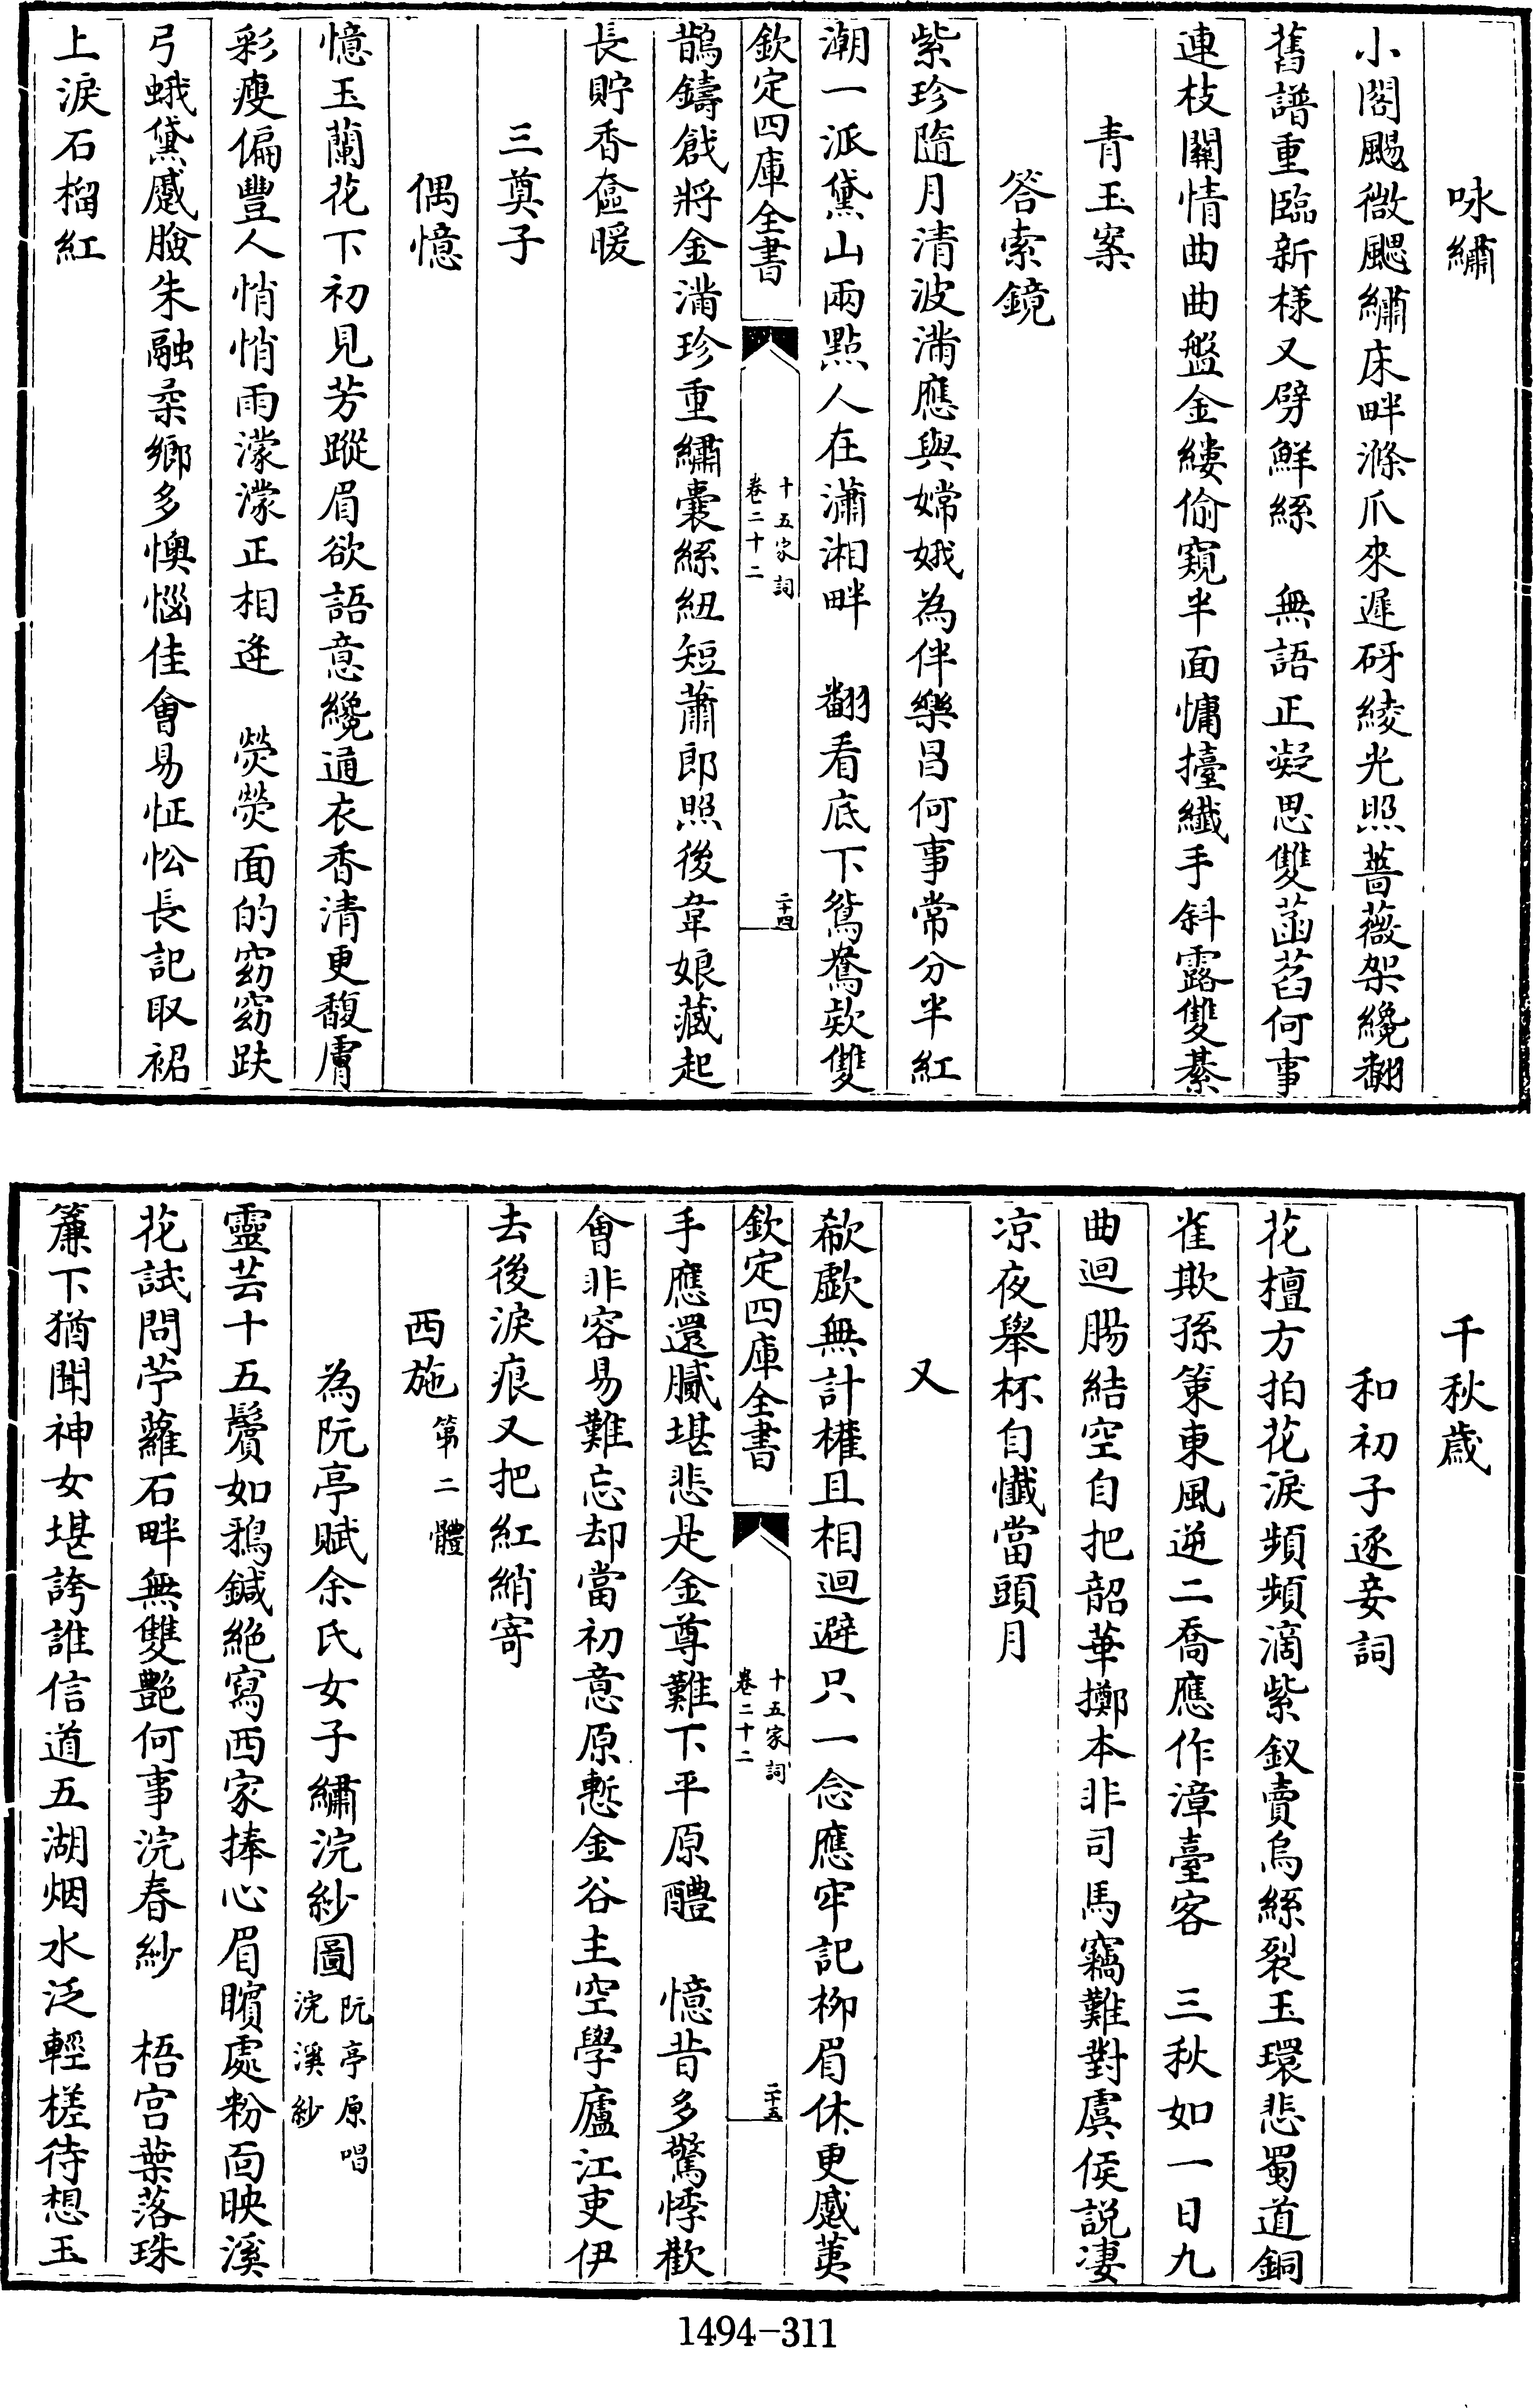 咏繡
小閣颺微颸繡床畔滌爪來遲砑綾光照薔薇架纔翻
舊譜重臨新様又劈鮮絲　無語正凝思雙菡萏何事
連枝關情曲曲盤金縷偷窺半面慵擡纖手斜露雙綦
青玉案
答索鏡
紫珍隨月清波滿應與嫦娥為伴樂昌何事常分半紅
潮一派黛山兩點人在瀟湘畔　翻看底下鴛鴦欵雙
欽定四庫全書
十五家詞
卷二十二
二十四
鵲鑄戧將金滿珍重繡囊絲紐短蕭郎照後韋娘藏起
長貯香奩暖
三奠子
偶憶
憶玉蘭花下初見芳蹤眉欲語意纔通衣香清更馥膚
彩瘦偏豐人悄悄雨濛濛正相逢　熒熒面的窈窈趺
弓蛾黛蹙臉朱融柔鄉多懊惱佳會易怔忪長記取裙
上淚石榴紅
千秋歲
和初子逐妾詞
花檀方拍花淚頻頻滴紫釵賣烏絲裂玉環悲蜀道銅
雀欺孫策東風逆二喬應作漳臺客　三秋如一日九
曲迴腸結空自把韶華擲本非司馬竊難對虞侯説淒
凉夜舉杯自懺當頭月
又
欷歔無計權且相迴避只一念應牢記柳眉休更蹙荑
欽定四庫全書
十五家詞
卷二十二
二十五
手應還膩堪悲是金尊難下平原醴　憶昔多驚悸歡
會非容易難忘却當初意原慙金谷主空學廬江吏伊
去後淚痕又把紅綃寄
西施第二體
為阮亭賦余氏女子繡浣紗圖阮亭原唱浣溪紗
靈芸十五鬢如鴉鍼絶寫西家捧心眉矉處粉面映溪
花試問苧蘿石畔無雙艶何事浣春紗　梧宫葉落珠
簾下猶聞神女堪誇誰信道五湖烟水泛輕槎待想玉
1494-311